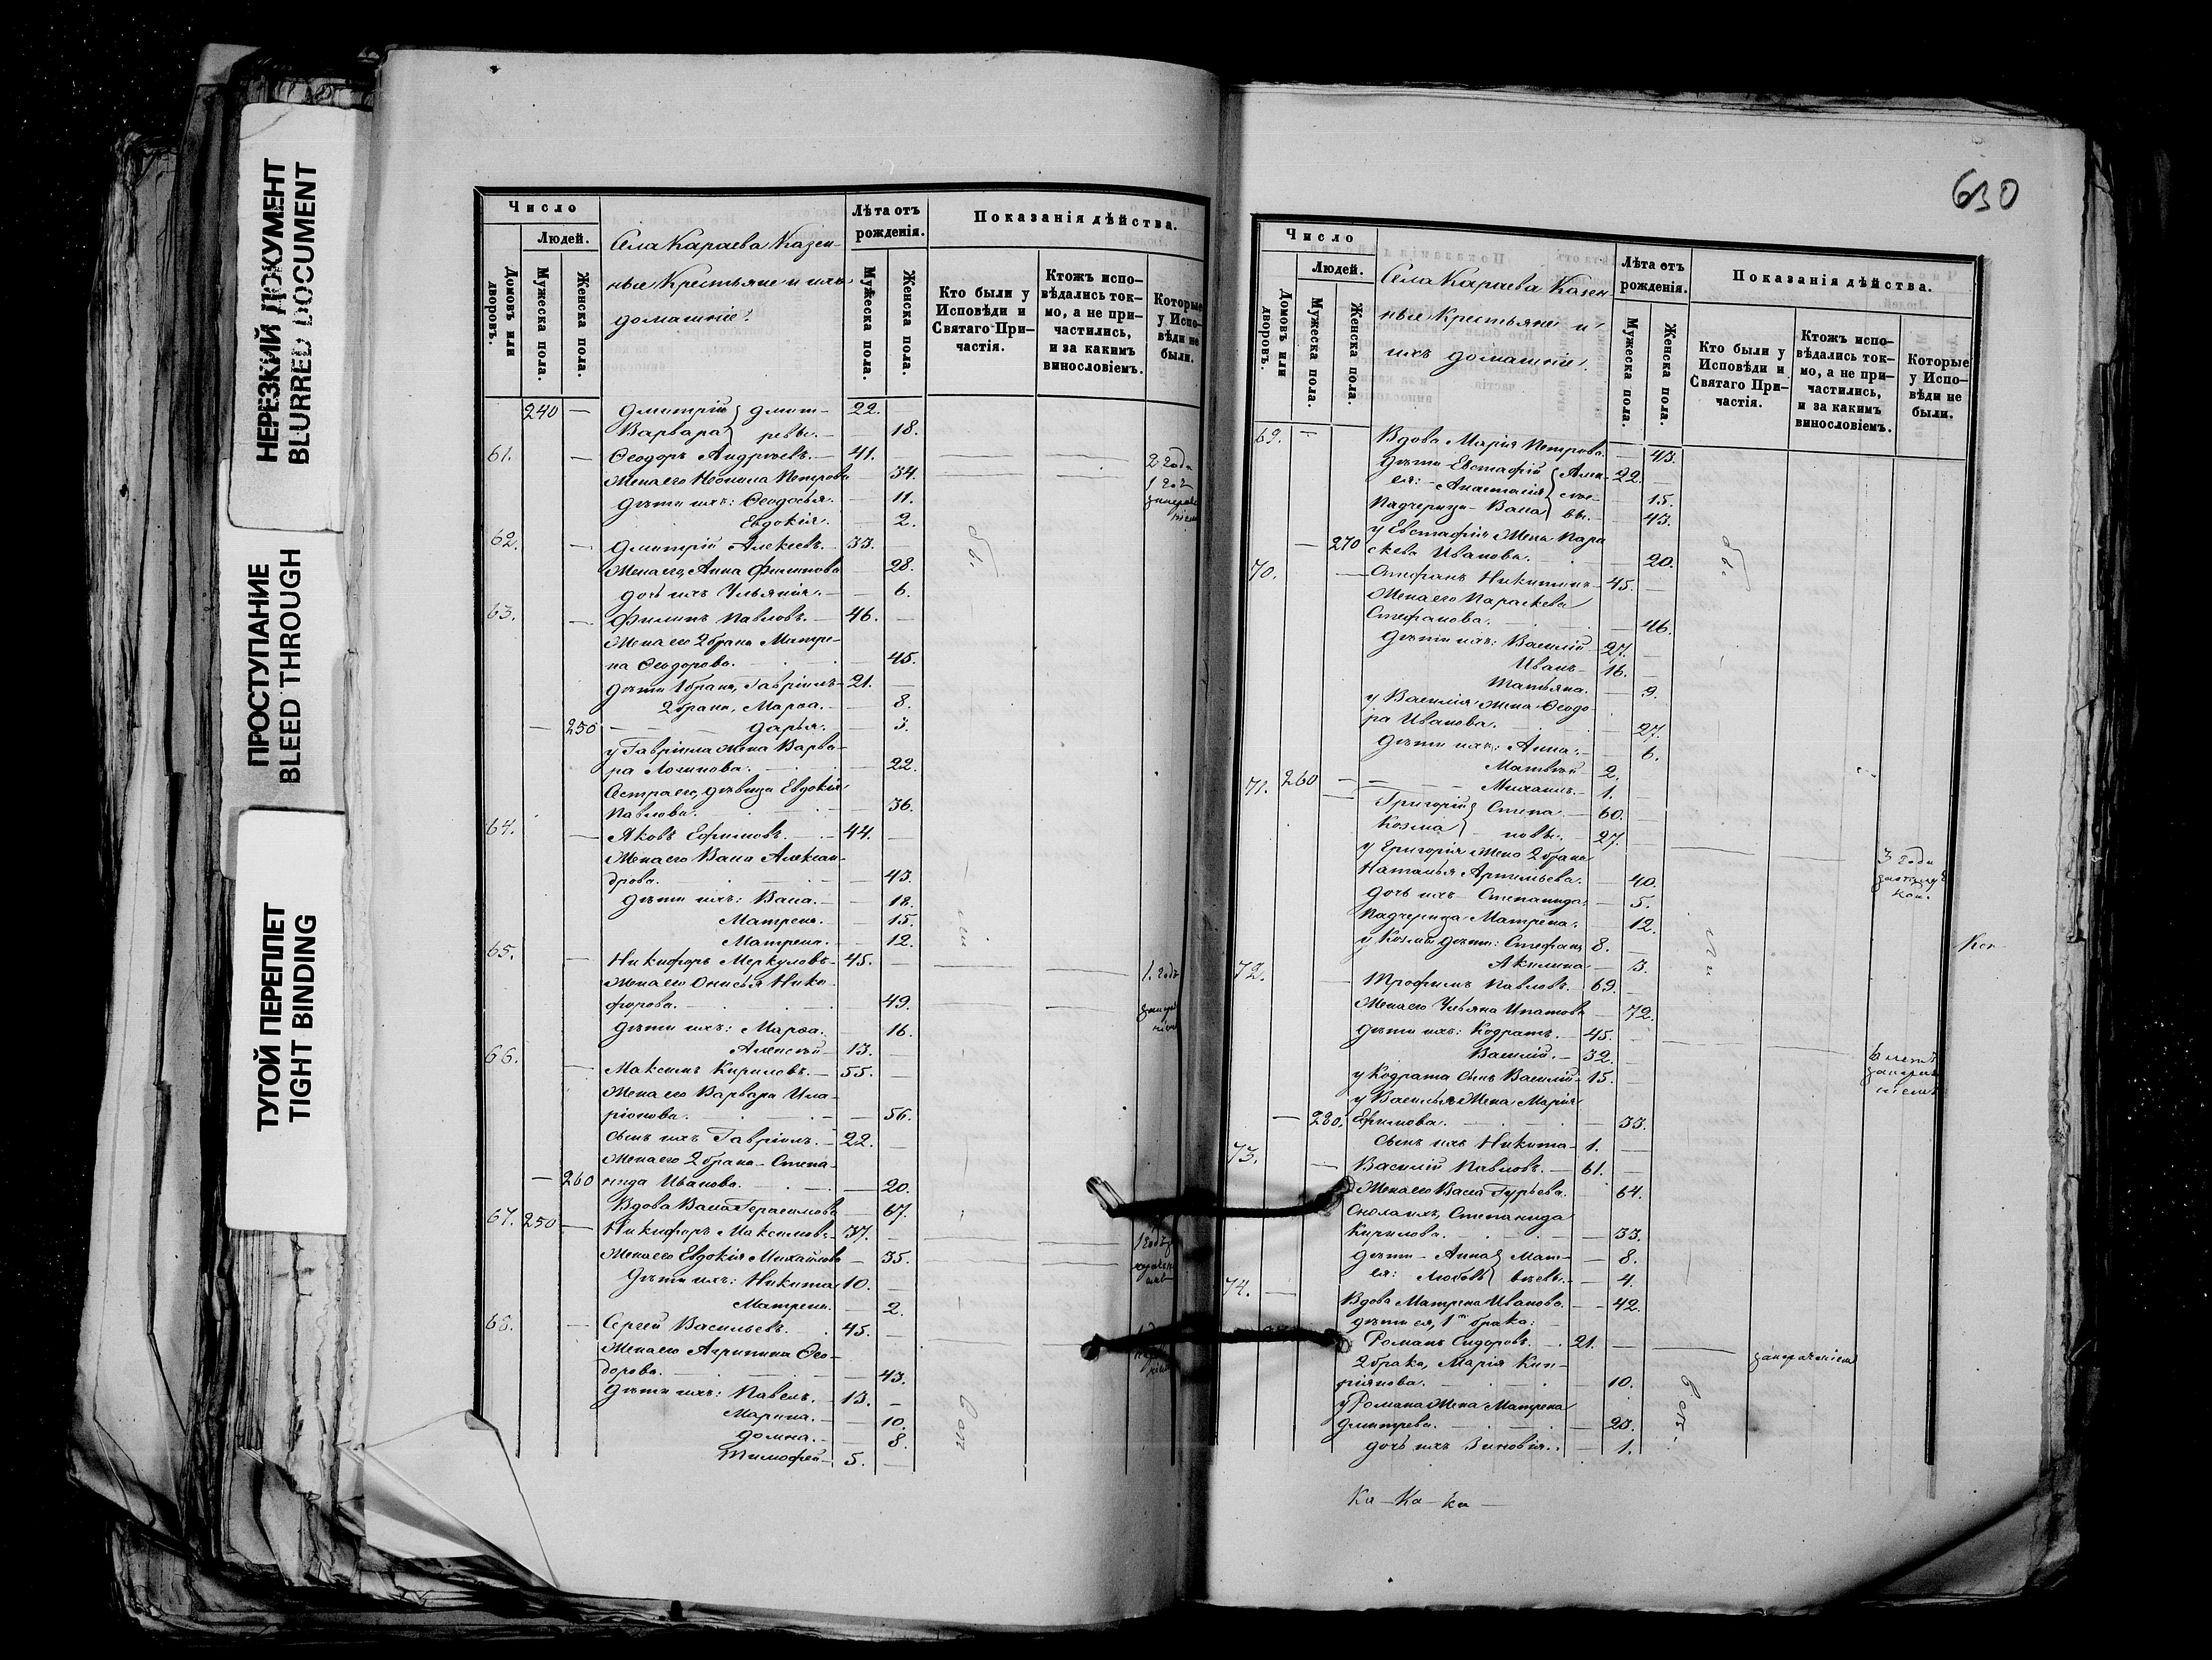 НЕРЕЗКИЙ ДОКУМЕНТ
BLURRED DOCUMENT
ПРОСТУПАНИЕ
BLEED THROUGH
ТУГОЙ ПЕРЕПЛЕТ
TIGHT BINDING
Число
Людей.
Домовъ или дворовъ.
Мужеска пола.
Женска пола.
Села Караева Казен-
ные Крестьяне и ихъ
домашніе.
Лѣта отъ рожденія.
Мужеска пола.
Женска пола.
Показанія дѣйства.
Кто были у Исповѣди и Святаго При-частія.
Ктожъ испо-вѣдались ток-мо, а не при-частились, и за какимъ винословіемъ.
Которые у Испо-вѣди не были.
240 — Дмитрій } Дмит- 22. —
Варвара } ревы. — — 18.
61. — Ѳеодоръ Андреевъ. — 41. — 2 года
Жена его Неонила Петрова 34. 1 годъ
Дѣти ихъ: Ѳеодосья. — — 11.
Евдокія. — 2.
62. — Дмитрій Алексеевъ. — 33. —
Жена его, Анна Филипова — 28.
дочь ихъ Ульянія. — — 6.
63. — Филипъ Павловъ. — 46. —
Жена его 2 брака Матре-
на Ѳеодорова. — 45.
Дѣти 1 брака, Гавріилъ — 21. —
2 брака, Марѳа. — — 8.
— 250 — — Дарья. — 3.
у Гавріила жена Варва-
ра Логинова. — — 22.
Сестра его, дѣвица Евдокія
Павлова. — 36.
64. — Яковъ Ефимовъ. — 44. —
Жена его Васса Алексан-
дрова. — 43.
Дѣти ихъ: Васса. — — 18.
Матрена. — 15.
Матрена. — — 12.
65. — Никифоръ Меркуловъ — 45. — 1. годъ
Жена его Онисья Ники-
форова. — 49.
Дѣти ихъ: Марѳа. 16.
Алексѣй — 13. —
66. — Максимъ Кириловъ. — 55. —
Жена его Варвара Ила-
ріонова. — 56.
Сынъ ихъ Гавріилъ. — 22. —
Жена его 2 брака — Степа-
— 260 нида Иванова. — 20.
Вдова Васса Герасимова — 67.
67. 250 — Никифоръ Максимовъ — 37. —
Жена его Евдокія Михайлова — 35.
Дѣти ихъ: Никита 10. —
Матрена. — 2.
68. — Сергей Васильевъ. 45. —
Жена его Агрипина Ѳео-
дорова. — 43.
Дѣти ихъ: Павелъ. — 13. —
Марина. — — 10.
Домна. — — 8.
Тимофей — 5. —
630
Число
Людей.
Домовъ или дворовъ.
Мужеска пола.
Женска пола.
Села Караева Казен-
ные Крестьяне и
ихъ домашніе.
Лѣта отъ рожденія.
Мужеска пола.
Женска пола.
Показанія дѣйства.
Кто были у Исповѣди и Святаго При-частія.
Ктожъ испо-вѣдались ток-мо, а не при-частились, и за какимъ винословіемъ.
Которые у Испо-вѣди не были.
69. — Вдова Марія Петрова. — 43.
Дѣти Евстафій } Алек- 22. —
ея: — Анастасія } сѣе- — 15.
Падчерица — Васса } вы. — — 43.
у Евстафія жена Пара-
— 270 скева Иванова. — 20.
70. — Стефанъ Никитинъ — 45. —
Жена его Параскева
Стефанова. — 46.
Дѣти ихъ: Василій — 27. —
Иванъ — 16. —
Татьяна. — 9.
у Василія жена Ѳеодо-
ра Иванова. — 27.
Дѣти ихъ: Анна. — 6.
Матвѣй — 2.
260 — — Михаилъ. — 1. —
71. — Григорій } Степа- 60. —
Козма } новы. — 27. —
у Григорія жена 2 брака 3 года
Наталья Артемьева. — 40.
дочь ихъ — Степанида. — 5.
Падчерица Матрена. — 12.
у Козмы дѣти: Стефанъ 8. —
Акилина — 3.
72. — Трофимъ Павловъ. — 69. —
Жена его Ульяна Ипатова — 72.
Дѣти ихъ: Кодратъ. — 45. —
Василій. — 32. —
у Кодрата сынъ Василій — 15. —
у Василья жена Марія
— 280. Ефимова. — 33.
Сынъ ихъ Никита — 1. —
73. — Василій Павловъ. — 61. —
Жена его Васса Гурьева. — 64.
Сноха ихъ, Степанида
Кирилова. — 33.
Дѣти — Анна } Мат- — 8.
ея: Любовь } вѣевы. — 4.
74. — Вдова Матрена Иванова. — 42.
Дѣти ея, 1го брака:
Романъ Сидоровъ. — 21. —
2 брака, Марія Кип-
ріянова. — 10.
у Романа жена Матрена
Дмитрева. — 23.
дочь ихъ Зиновія. — 1.
Ка — Ка — ка —